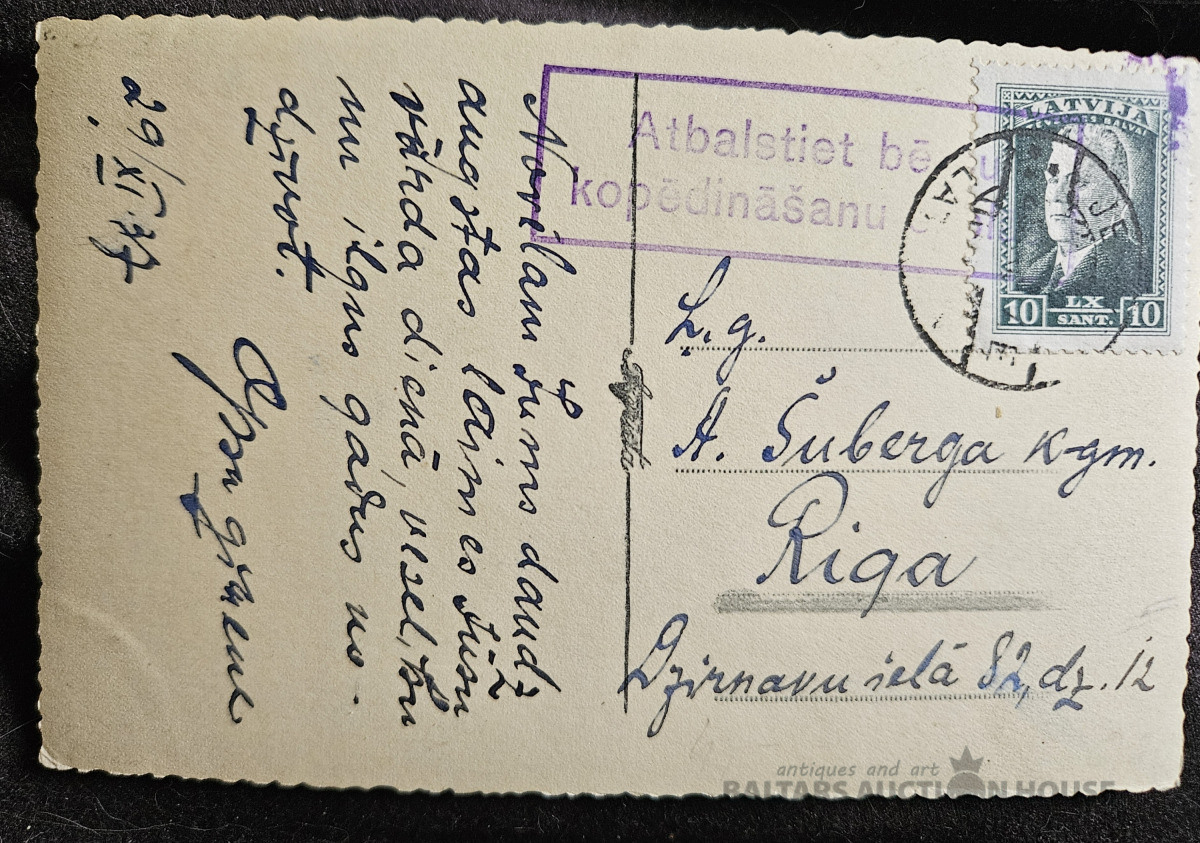 Novēlam Jums daudz
augstas laimes Jūsu
vārda dienā, veselību
un ilgus gadus no-
dzīvot.
29/XI 37
Atbalstiet bē
kopēdināšanu
LATVIJA
10 LX SANT. 10
Ļ. g.
A. Šuberga kgm.
Riga
Dzirnavu ielā 82, dz. 12
antiques and art
BALTARS AUCTION HOUSE